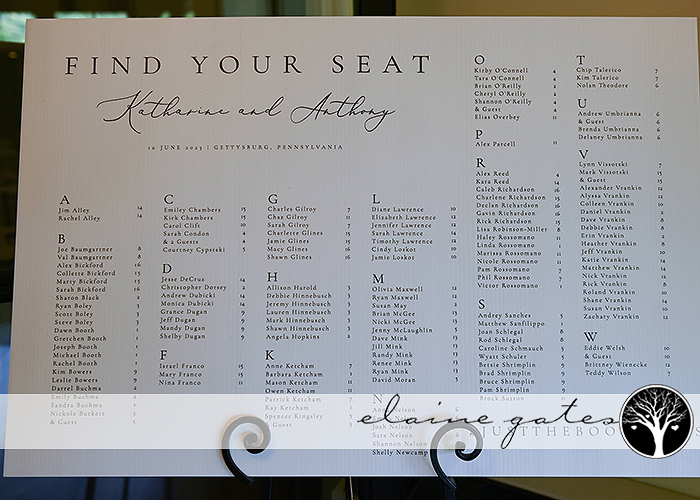 FIND YOUR SEAT
Katharine and Anthony
10 JUNE 2023 | GETTYSBURG, PENNSYLVANIA
A
Jim Alley 14
Rachel Alley 14
B
Joe Baumgartner
Val Baumgartner 8
Alex Bickford 16
Collette Bickford 15
Marty Bickford 15
Sarah Bickford 16
Sharon Black 2
Ryan Boley 3
Scott Boley 3
Steve Boley 3
Dawn Booth 1
Gretchen Booth 1
Joseph Booth 1
Michael Booth 1
Rachel Booth 1
Kim Bowers 9
Leslie Bowers 9
Darrel Buchma 2
Emily Buchma
Sandra Buchma
Nickole Burkett
& Guest
C
Emiley Chambers 15
Kirk Chambers 15
Carol Clift 10
Sarah Condon 4
& a Guests 4
Courtney Cyptski 5
D
Jesse DeCruz 14
Christopher Dorsey 2
Andrew Dubicki 14
Monica Dubicki 14
Grance Dugan 9
Jeff Dugan 9
Mandy Dugan 9
Shelby Dugan 9
F
Israel Franco 15
Mary Franco 15
Nina Franco 11
G
Charles Gilroy 7
Chaz Gilroy 11
Sarah Gilroy 7
Charlette Glines 15
Jamie Glines 15
Macy Glines 15
Shawn Glines 16
H
Allison Harold 2
Debbie Hinnebusch 3
Jeremy Hinnebusch 3
Lauren Hinnebusch 3
Mark Hinnebusch 3
Shawn Hinnebusch 3
Angela Hopkins 2
K
Anne Ketchum 7
Barbara Ketchum
Mason Ketcham
Owen Ketcham 11
Patrick Ketchum 7
Ray Ketchum
Spencer Kingsley
& Guest
L
Diane Lawrence 10
Elizabeth Lawrence 12
Jennifer Lawrence 12
Sarah Lawrence 12
Timothy Lawrence 12
Cindy Loskot 10
Jamie Loskot 10
M
Olivia Maxwell 12
Ryan Maxwell 12
Susan May 2
Brian McGee 13
Nicki McGee 13
Jenny McLaughlin 5
Dave Mink 13
Jill Mink 13
Randy Mink 13
Renee Mink 13
Ryan Mink 13
David Moran 5
N
Anne Nelson 6
Josh Nelson
Sara Nelson
Shannon Nelson
Shelly Newcamp
O
Kirby O'Connell 4
Tara O'Connell 4
Brian O'Reilly 4
Cheryl O'Reilly 2
Shannon O'Reilly 4
& Guest 4
Elias Overbey 11
P
Alex Parcell 11
R
Alex Reed 4
Kara Reed 14
Caleb Richardson 16
Charlene Richardson 15
Declan Richardson 16
Gavin Richardson 16
Rick Richardson 15
Lisa Robinson-Miller 8
Haley Rossomano 11
Linda Rossomano 7
Marissa Rossomano 11
Nicole Rossomano 6
Pam Rossomano 7
Phil Rossomano 7
Victor Rossomano 1
S
Andrey Sanches 5
Matthew Sanfilippo 1
Joan Schlegal 8
Rod Schlegal 8
Caroline Schmauch 5
Wyatt Schuler 5
Betsie Shrimplin 9
Brad Shrimplin 9
Bruce Shrimplin 9
Pam Shrimplin 9
Brock Sutton
T
Chip Talerico 7
Kim Talerico 7
Nolan Theodore 6
U
Andrew Umbrianna 6
& Guest 6
Brenda Umbrianna 6
Delaney Umbrianna 6
V
Lynn Vissotski 7
Mark Vissotski 7
& Guest 15
Alexander Vrankin 12
Alyssa Vrankin 12
Colleen Vrankin 10
Daniel Vrankin 2
Dave Vrankin 8
Debbie Vrankin 8
Erin Vrankin 8
Heather Vrankin 8
Jeff Vrankin 10
Katie Vrankin 14
Matthew Vrankin 14
Nick Vrankin 8
Rick Vrankin 8
Roland Vrankin 10
Shane Vrankin 14
Susan Vrankin 10
Zachary Vrankin 12
W
Eddie Welsh 10
& Guest 10
Brittney Wienecke 12
Teddy Wilson 7
elaine gates